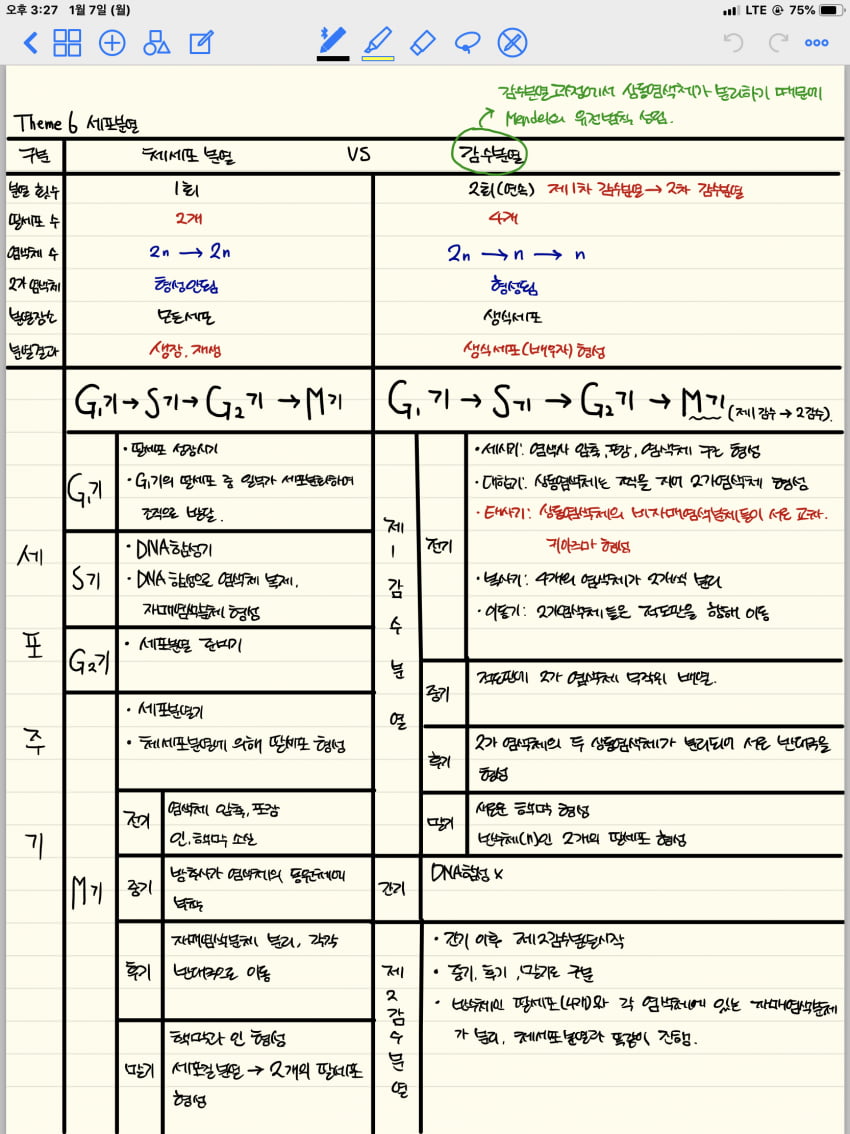 오후 3:27 1월 7일 (월)
LTE 75%
감수분열 과정에서 상동염색체가 분리하기 때문에
Mendel의 유전법칙 성립.
Theme 6 세포분열
구분 체세포 분열 VS 감수분열
분열 횟수 1회 2회(연속) 제1차 감수분열 → 2차 감수분열
딸세포 수 2개 4개
염색체 수 2n → 2n 2n → n → n
2가 염색체 형성안됨 형성됨
분열장소 모든세포 생식세포
분열결과 생장, 재생 생식세포(배우자) 형성
세포주기
G₁기 → S기 → G₂기 → M기
G₁기 → S기 → G₂기 → M기 (제1감수 → 2감수).
G₁기
· 딸세포 성장시기
· G₁기의 딸세포 중 일부가 세포분화하여
조직으로 발달.
S기
· DNA합성기
· DNA 합성으로 염색체 복제,
자매염색분체 형성
G₂기
· 세포분열 준비기
M기
· 세포분열기
· 체세포분열에 의해 딸세포 형성
전기
염색체 압축, 포장
인, 핵막 소실
중기
방추사가 염색체의 동원체에
부착
후기
자매염색분체 분리, 각각
반대극으로 이동
말기
핵막과 인 형성
세포질분열 → 2개의 딸세포
형성
제1감수분열
전기
· 세사기: 염색사 압축, 포장, 염색체 구조 형성
· 대합기: 상동염색체는 짝을 지어 2가염색체 형성
· 태사기: 상동염색체의 비자매염색분체들이 서로 교차.
키아즈마 형성
· 복사기: 4개의 염색체가 2개씩 분리
· 이동기: 2가염색체들은 적도판을 향해 이동
중기
적도판에 2가 염색체 무작위 배열.
후기
2가 염색체의 두 상동염색체가 분리되어 서로 반대극을
형성
말기
새로운 핵막 형성
반수체(n)인 2개의 딸세포 형성
간기
DNA합성 X
제2감수분열
· 간기 이후 제2감수분열시작
· 중기, 후기, 말기로 구분
· 반수체인 딸세포(4개)와 각 염색체에 있는 자매염색분체
가 분리, 체세포분열과 똑같이 진행.